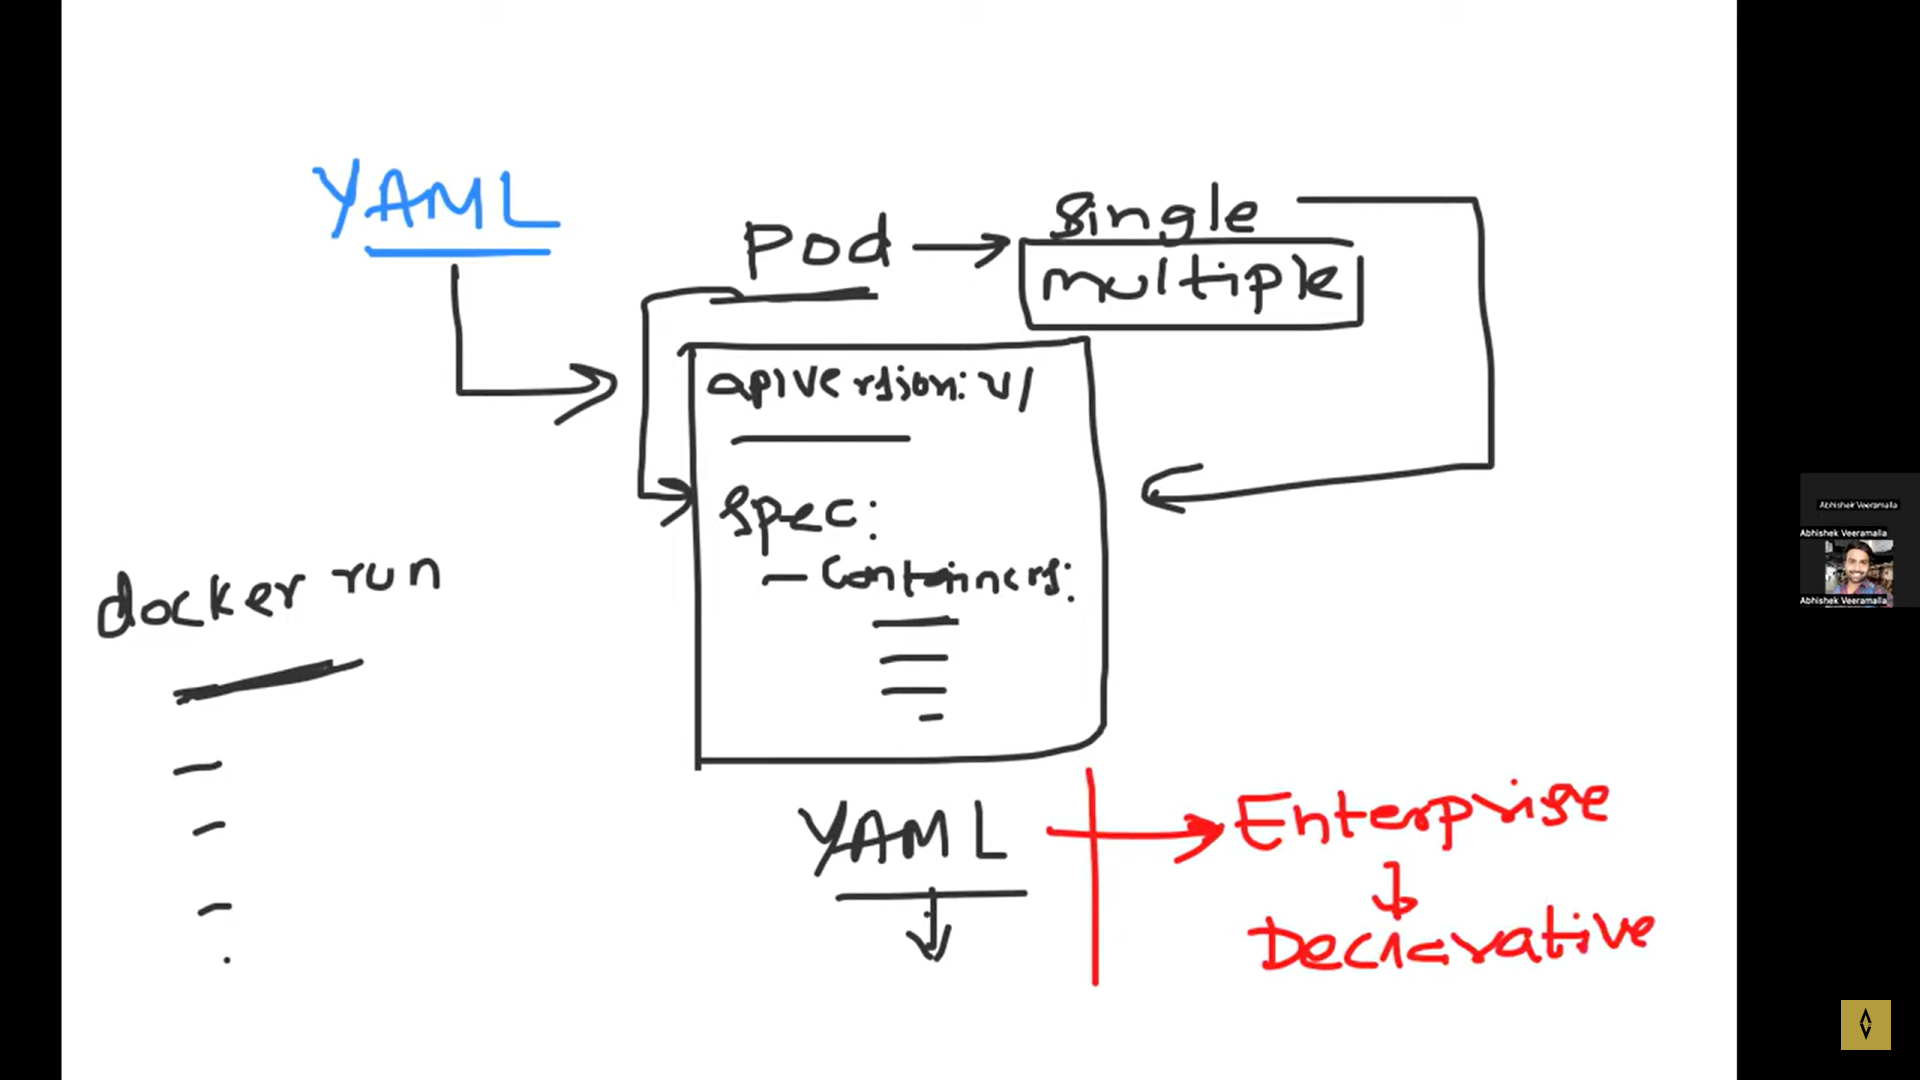 YAML
Pod
single
multiple
apiVersion: v1
spec:
- Containers:
docker run
YAML
Enterprise
Declarative
Abhishek Veeramalla
Abhishek Veeramalla
Abhishek Veeramalla